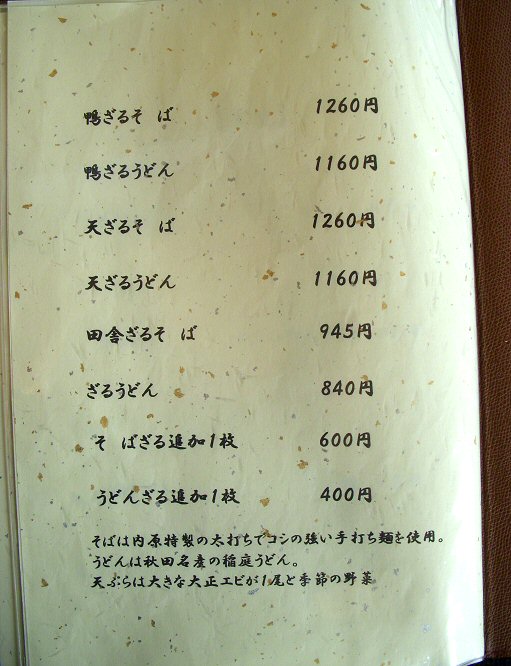 鴨ざるそば 1260円
鴨ざるうどん 1160円
天ざるそば 1260円
天ざるうどん 1160円
田舎ざるそば 945円
ざるうどん 840円
そばざる追加1枚 600円
うどんざる追加1枚 400円
そばは内原特製の太打ちでコシの強い手打ち麺を使用。
うどんは秋田名産の稲庭うどん。
天ぷらは大きな大正エビが1尾と季節の野菜